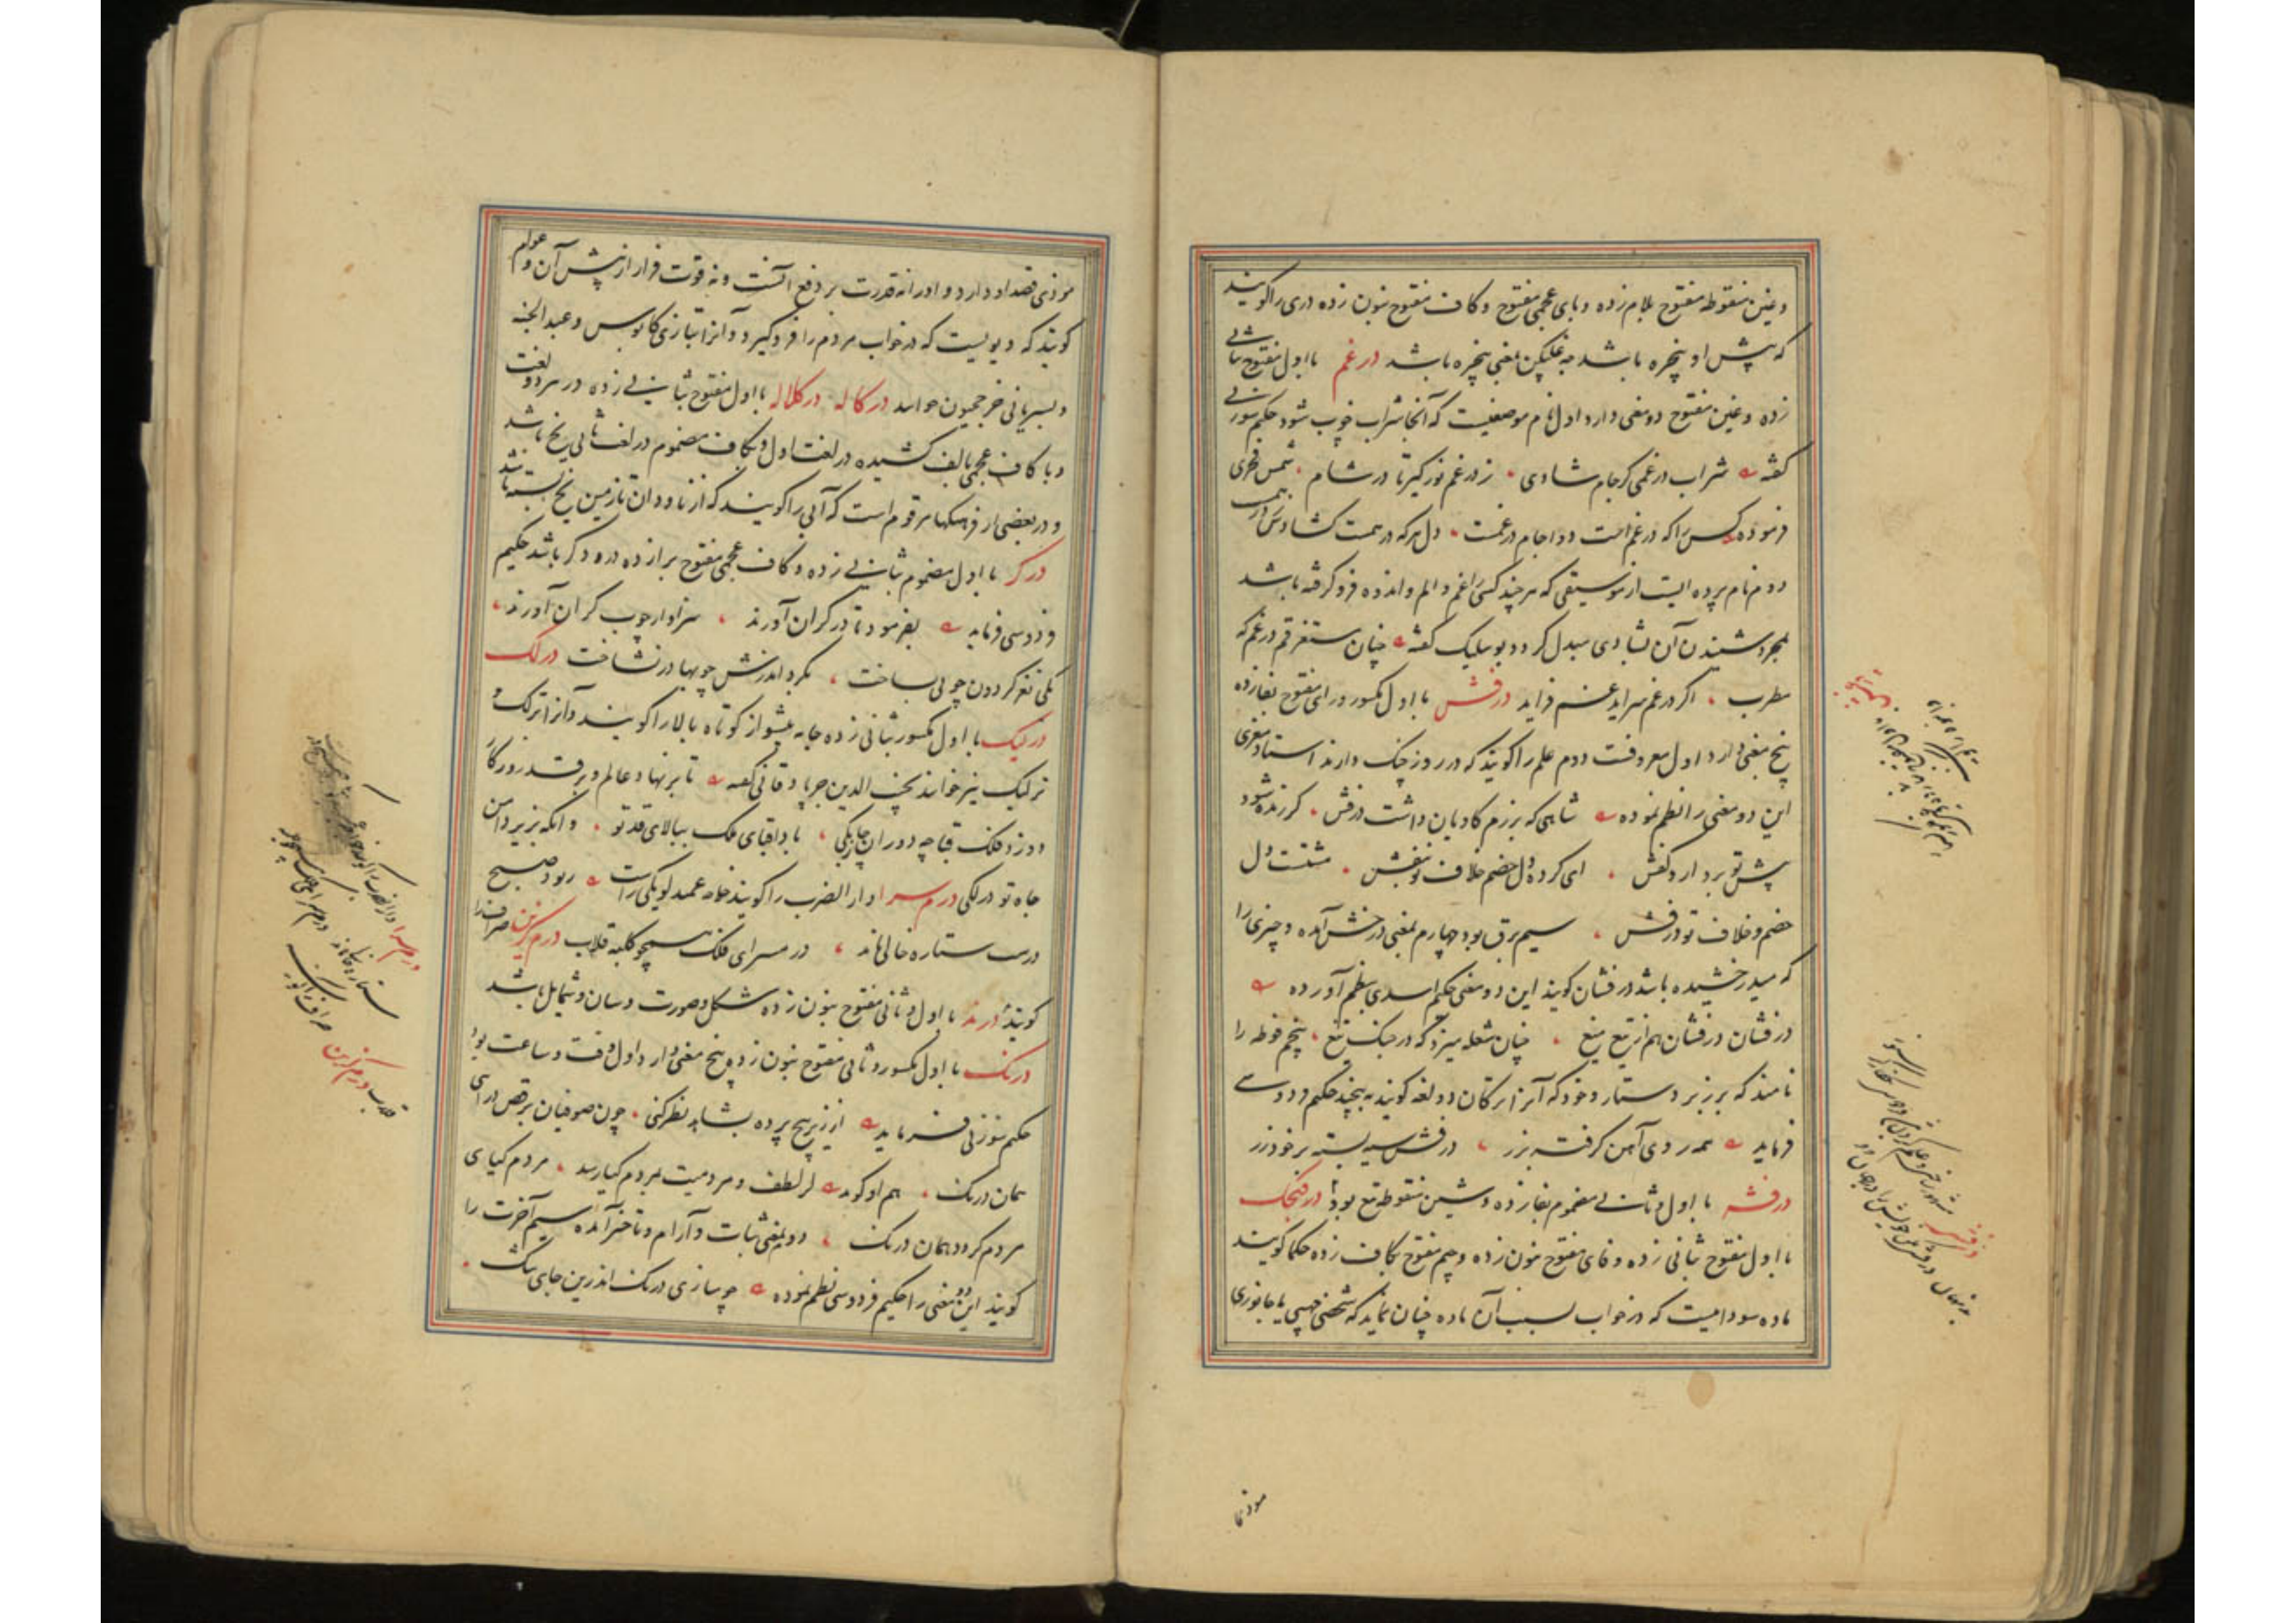 وغین منقوطه مفتوح بلام زده وبای عجمی مفتوح وکاف مفتوح بنون زده دری را کویند
که پیش او پنجره باشد چه غلپکن بمعنی پنجره باشد درغم با اول مفتوح بثانی
زده وغین مفتوح دو معنی دارد اول نام موضعیست که آنجا شراب خوب شود حکیم سوزنی
کفته شراب درغمی کر جام شادی ز درغم نوز کیر تا در شام شمس فخری
فرموده کسی را که در غم است دوا جام درغمست دل هر که در همست کشادش
دوم نام پرده ایست از موسیقی که هر چند کسی را غم و الم و اندوه فرو کرفته باشد
بمجرد شنیدن آن بشادی مبدل کردد بو سلیک کفته چنان مستغرقم در غم که
مطرب اکر درغم سراید غم فزاید درفش با اول مکسور ورای مفتوح بفا زده
پنج معنی دارد اول معروفست دوم علم را کویند که در روز جنک دارند استاد مغزی
این دو معنی را نظم نموده شاهی که برزم کاویان داشت درفش کر زنده شود
پیش تو بردارد کفش ای کرده دل خصم خلاف تو بنفش مشتست دل
خصم و خلاف تو درفش سیم برق بود چهارم بمعنی درخش آمده و چیزی را
که میدرخشیده باشد درفشان کویند این دو معنی حکیم اسدی بنظم آورده
درفشان درفشان هم از تیغ میغ چنان شعله میزد که در جنک تیغ پنجم فوطه را
نامند که بر زبر دستار و خود که آنرا ترکان دولغه کویند به پیچند حکیم فردوسی
فرماید همه روی آهن کرفته بزر درفش سیه بسته بر خود زر
درفشه با اول و ثانی مضموم بفا زده وشین منقوطه تیغ بود درفنجک
با اول مفتوح بثانی زده و فای مفتوح بنون زده و جیم مفتوح بکاف زده حکما کویند
ماده سوداییست که در خواب بسبب آن ماده چنان نماید که شخصی مهیبی یا جانوری
موذی
موذی قصد او دارد و او را نه قدرت بر دفع آنست و نه قوت فرار از پیش آن و عوام
کویند که دیویست که در خواب مردم را فرو کیرد و آنرا بتازی کابوس و عبد الجنه
و بسریانی خرخجیون خوانند درکاله درکلاله با اول مفتوح بثانی زده در هر دو لغت
و با کاف عجمی بالف کشیده در لغت اول و بکاف مضموم در لغت ثانی یخ باشد
و در بعضی از فرهنکها مرقوم است که آبی را کویند که از ناودان تا زمین یخ بسته باشد
درکر با اول مضموم بثانی زده و کاف عجمی مفتوح برا زده درودکر باشد حکیم
فردوسی فرماید بفرمود تا درکران آورند سزاوار چوب کران آورند
یکی نغز کردون چوبی بساخت بکرد اندرش چوبها در نشاخت درلک
درلیک با اول مکسور بثانی زده جامه پیشواز کوتاه بالا را کویند و آنرا ترلک و
ترلیک نیز خوانند نجیب الدین جرباذقانی کفته تا بر نهاد عالم و بر قد روزکار
دوزد فلک قباچه دوران چابکی بادا قبای ملک ببالای قد تو وانکه بزیر دامن
جاه تو درلکی درم سرا دار الضرب را کویند خواجه عمید لویکی راست ربود صبح
درست ستاره خالی ماند درم سرای فلک همچو کلبه قلاب درم کزین صراف را
کویند درند با اول و ثانی مفتوح بنون زده شکل و صورت و سان و شمایل باشد
درنک با اول مکسور و ثانی مفتوح بنون زده پنج معنی دارد اول وقت و ساعت بود
حکیم سوزنی فرماید از زیر هیچ پرده بشاهد نظر کنی چون صوفیان برقص درآی
همان درنک هم او کوید از لطف و مردمیت بمردم کیا رسد مردم کیای
مردم کردد همان درنک دوم بمعنی ثبات و آرام و تاخیر آمده سیم آخرت را
کویند این دو معنی را حکیم فردوسی نظم نموده چو سازی درنک اندرین جای تنک
درم سرا
درم کزین
درفشه